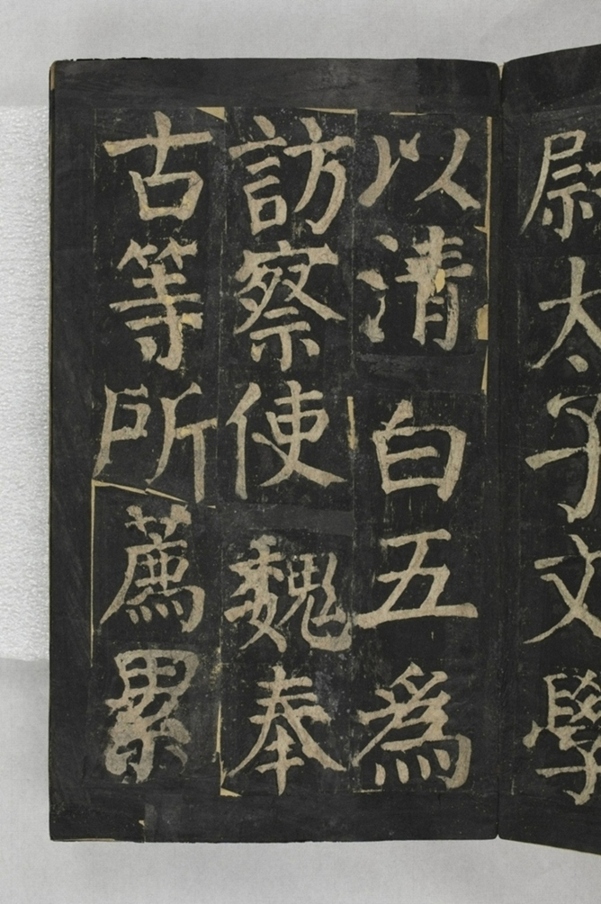 尉太子文學
以清白五為
訪察使魏奉
古等所薦累